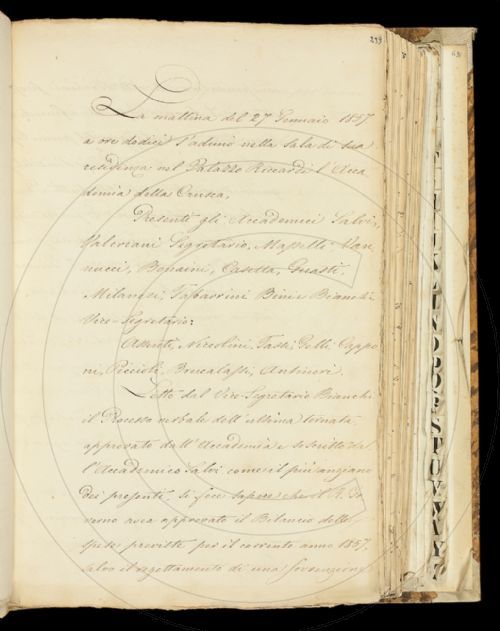 299
La mattina del 27 Gennaio 1857
a ore dodici s'adunò nella sala di sua
residenza nel Palazzo Riccardi l'Acca
demia della Crusca.
Presenti gli Accademici Salvi,
Valeriani Segretario, Masselli, Van
nucci, Bonaini, Casotta, Guasti,
Milanesi, Tabarrini Bini e Bianchi
Vice-Segretario:
Assenti, Niccolini, Tassi, Gelli, Cappo
ni, Piccioli, Brucalassi, Antinori.
Letto dal Vice Segretario Bianchi
il Processo verbale dell'ultima tornata,
approvato dall'Accademia e sottoscritto dal
l'Accademico Salvi come il più anziano
dei presenti, si fece sapere che il R. Go
verno avea approvato il Bilancio delle
spese previste per il corrente anno 1857,
salvo il rigettamento di una sovvenzione